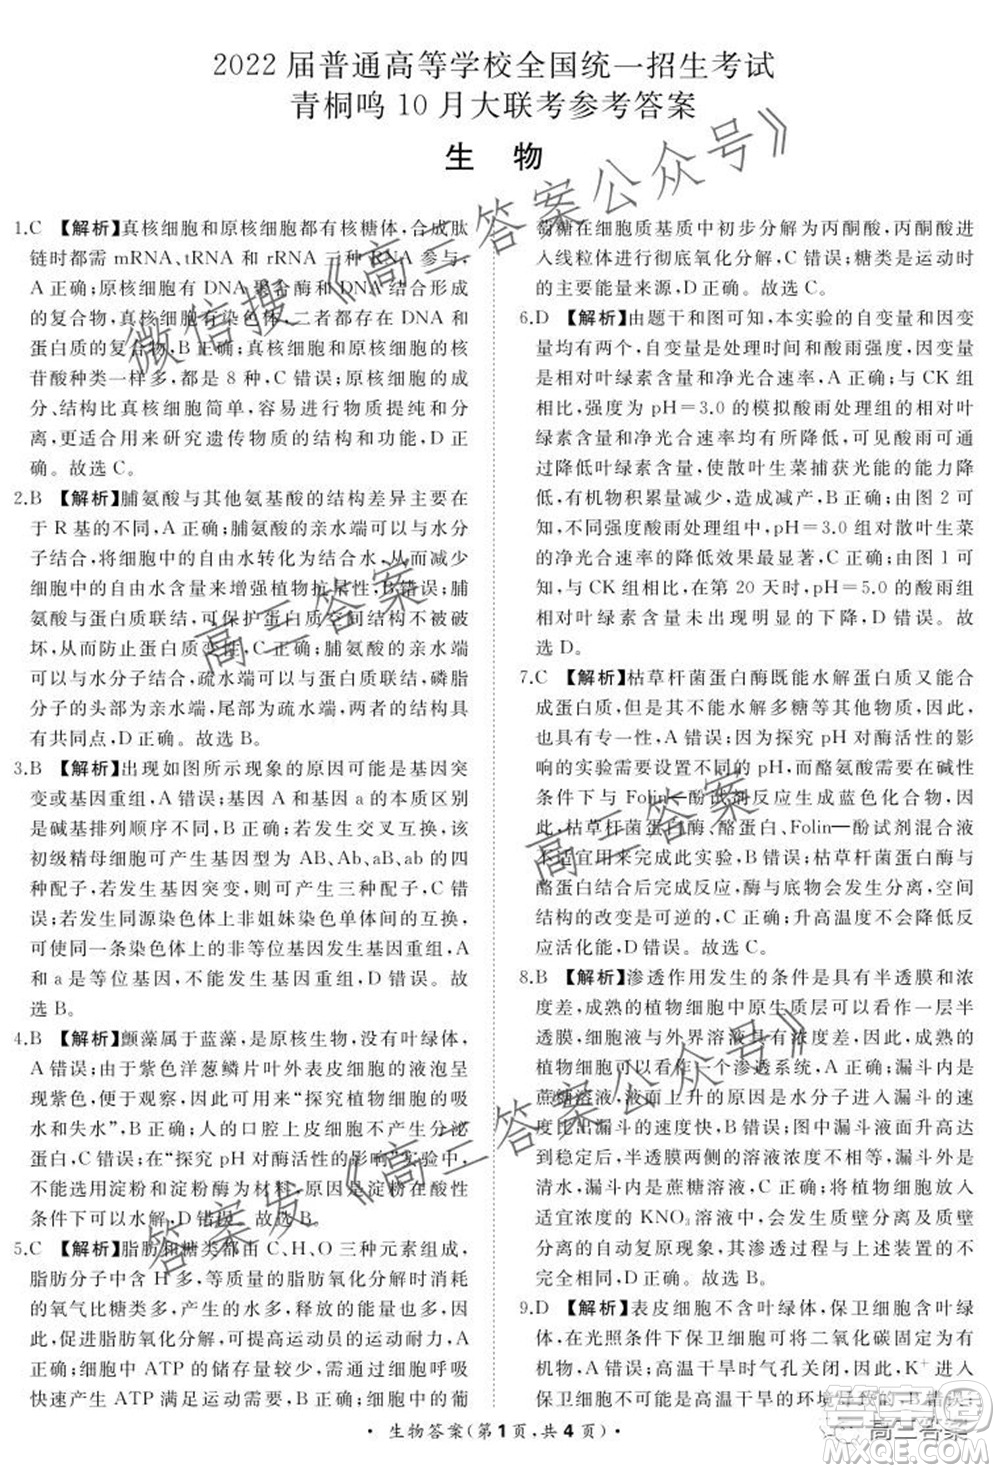 2022 届普通高等学校全国统一招生考试
青桐鸣 10 月大联考参考答案
生 物
1.C 【解析】真核细胞和原核细胞都有核糖体,合成肽
链时都需 mRNA、tRNA 和 rRNA 三种 RNA 参与,
A 正确;原核细胞有 DNA 聚合酶和 DNA 形成
的复合物,真核细胞有染色体,二者都存在 DNA 和
蛋白质的复合物,B 正确;真核细胞和原核细胞的核
苷酸种类一样多,都是 8 种,C 错误;原核细胞的成
分、结构比真核细胞简单,容易进行物质提纯和分
离,更适合用来研究遗传物质的结构和功能,D 正
确。故选 C。
2.B 【解析】脯氨酸与其他氨基酸的结构差异主要在
于 R 基的不同,A 正确;脯氨酸的亲水端可以与水分
子结合,将细胞中的自由水转化为结合水,从而减少
细胞中的自由水含量来增强植物抗旱性,B 错误;脯
氨酸与蛋白质联结,可保护蛋白质空间结构不被破
坏,从而防止蛋白质变性,C 正确;脯氨酸的亲水端
可以与水分子结合,疏水端可以与蛋白质联结,磷脂
分子的头部为亲水端,尾部为疏水端,两者的结构具
有共同点,D 正确。故选 B。
3.B 【解析】出现如图所示现象的原因可能是基因突
变或基因重组,A 错误;基因 A 和基因 a 的本质区别
是碱基排列顺序不同,B 正确;若发生基因突变,该
初级精母细胞可产生基因型为 AB、Ab、aB、ab 的四
种配子,若发生基因重组,也可产生四种配子,C 错
误;若发生同源染色体上非姐妹染色单体的交换,可
使同一条染色体上的非等位基因发生基因重组,A
和 a 是等位基因,不能发生基因重组,D 错误。故
选 B。
4.B 【解析】颤藻属于蓝藻,是原核生物,没有叶绿体,
A 错误;由于紫色洋葱鳞片叶外表皮细胞的液泡呈
现紫色,便于观察,因此可以用来“探究植物细胞的吸
水和失水”,B 正确;人的口腔上皮细胞不产生分泌
蛋白,C 错误;在“探究 pH 对酶活性的影响”实验中,
不能选用淀粉和淀粉酶为材料,原因是淀粉在酸性
条件下可以水解,D 错误。故选 B。
5.C 【解析】脂肪和糖类都由 C、H、O 三种元素组成,
脂肪分子中含 H 多,等质量的脂肪氧化分解时消耗
的氧气比糖类多,产生的水多,释放的能量多,A 错误;因
此,促进脂肪氧化分解,可提高运动员的运动耐力,
B 错误;细胞中 ATP 的储存量较少,可以通过细胞呼吸
快速产生 ATP 满足运动需要,B 错误;细胞中的葡
萄糖在细胞质基质中初步分解为丙酮酸,丙酮酸进
入线粒体进行彻底氧化分解,C 错误;糖类是运动时
的主要能量来源,D 错误。故选 C。
6.D 【解析】由题干和图可知,本实验的自变量和因变
量均有两个,自变量是处理时间和酸雨强度,因变量
是相对叶绿素含量和净光合速率,A 正确;与 CK 组
相比,强度为 pH=3.0 的模拟酸雨处理组的相对叶
绿素含量和净光合速率均有所降低,可以推测酸雨
可能会降低叶绿素含量,使散叶生菜捕获光能的能力降
低,有机物积累量减少,造成减产,B 正确;由图 2 可
知,不同强度酸雨处理组中,pH=3.0 组对散叶生菜
的净光合速率的降低效果最显著,C 正确;由图 1 可
知,与 CK 组相比,在第 20 天时,pH=5.0 的酸雨组
相对叶绿素含量未出现明显的下降,D 错误。故
选 D。
7.C 【解析】枯草杆菌蛋白酶既能水解蛋白质又能合
成蛋白质,但不能水解多糖等其他物质,因此仍然具
有专一性,A 错误;探究 pH 对酶活性的影
响的实验需要设置不同的 pH,而酪氨酸能在碱性
条件下与 Folin—酚试剂反应生成蓝色化合物。因
此,枯草杆菌蛋白酶、酪蛋白、Folin—酚试剂混合液
不适宜用来完成此实验,B 错误;枯草杆菌蛋白酶与
酪蛋白结合后完成反应,酶与底物分离,空间
结构的改变是可逆的,C 正确;升高温度不会降低反
应活化能,D 错误。故选 C。
8.B 【解析】渗透作用发生的条件是具有半透膜和浓
度差,成熟的植物细胞中原生质层可以看作一层半
透膜,细胞液与外界溶液具有浓度差,成熟的
植物细胞可以看作一个渗透系统,A 正确;漏斗内是
蔗糖溶液,液面上升的原因是水分子进入漏斗的速
度比出漏斗的速度快,B 错误;图中漏斗液面升高
后,半透膜两侧的溶液浓度不相等,因为漏斗外是
清水,漏斗内是蔗糖溶液,C 正确;将植物细胞放入
适宜浓度的 KNO₃ 溶液中,会发生质壁分离及质壁
分离自动复原现象,其原理与上述装置的原理相
同,D 正确。故选 B。
9.D 【解析】表皮细胞不含叶绿体,保卫细胞含叶绿
体,在光照条件下保卫细胞可将二氧化碳固定为有
机物,A 错误;高温干旱时气孔关闭,因此,K⁺ 进入
保卫细胞可能是高温干旱的环境导致的,B 错误;
• 生物答案(第 1 页,共 4 页) •
微信搜《高三答案公众号》
高三答案
高三答案
答案发《高三答案公众号》
高三答案
MXQE.COM